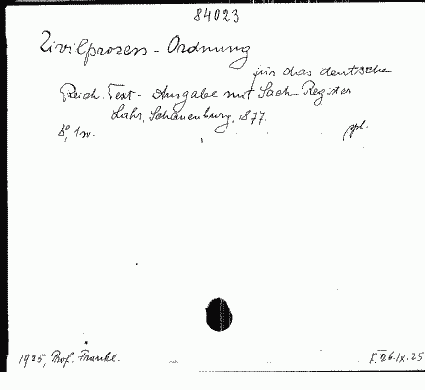 84023
Zivilprozess-Ordnung
für das deutsche
Reich. Text-Ausgabe mit Sach Register
Lahr, Schauenburg, 1877.
8°, 1 w. ppl.
1925, Prof. Franke. I. 26.IX.25